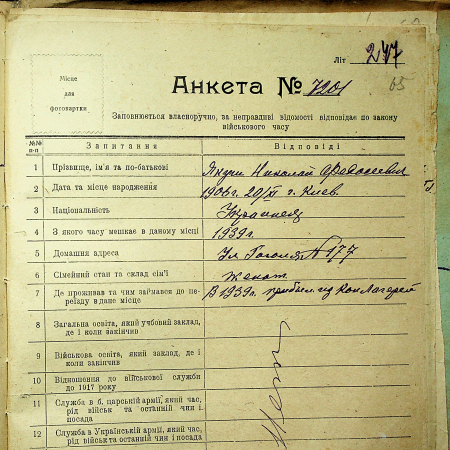 Літ 247
65
Місце
для
фотокартки
Анкета № 7201
Заповнюється власноручно, за неправдиві відомості відповідає по закону
військового часу
№№ п-п
Запитання
Відповіді
1 Прізвище, ім'я та по-батькові
Николай Феодосеевич
2 Дата та місце народження
1906г. 20/XI г. Киев.
3 Національність
Украинец
4 З якого часу мешкає в даному місці
1939г.
5 Домашня адреса
Ул Гоголя № 177
6 Сімейний стан та склад сім'ї
Женат.
7 Де проживав та чим займався до пе-
реїзду в дане місце
В 1939г. прибыл из Конлагерей
8 Загальна освіта, який учбовий заклад,
де і коли закінчив
9 Військова освіта, який заклад, де і
коли закінчив
Нет
10 Відношення до військової служби
до 1917 року
11 Служба в б. царській армії, який час,
рід військ та останній чин і
посада
12 Служба в Українській армії, який час,
рід військ та останній чин і посада